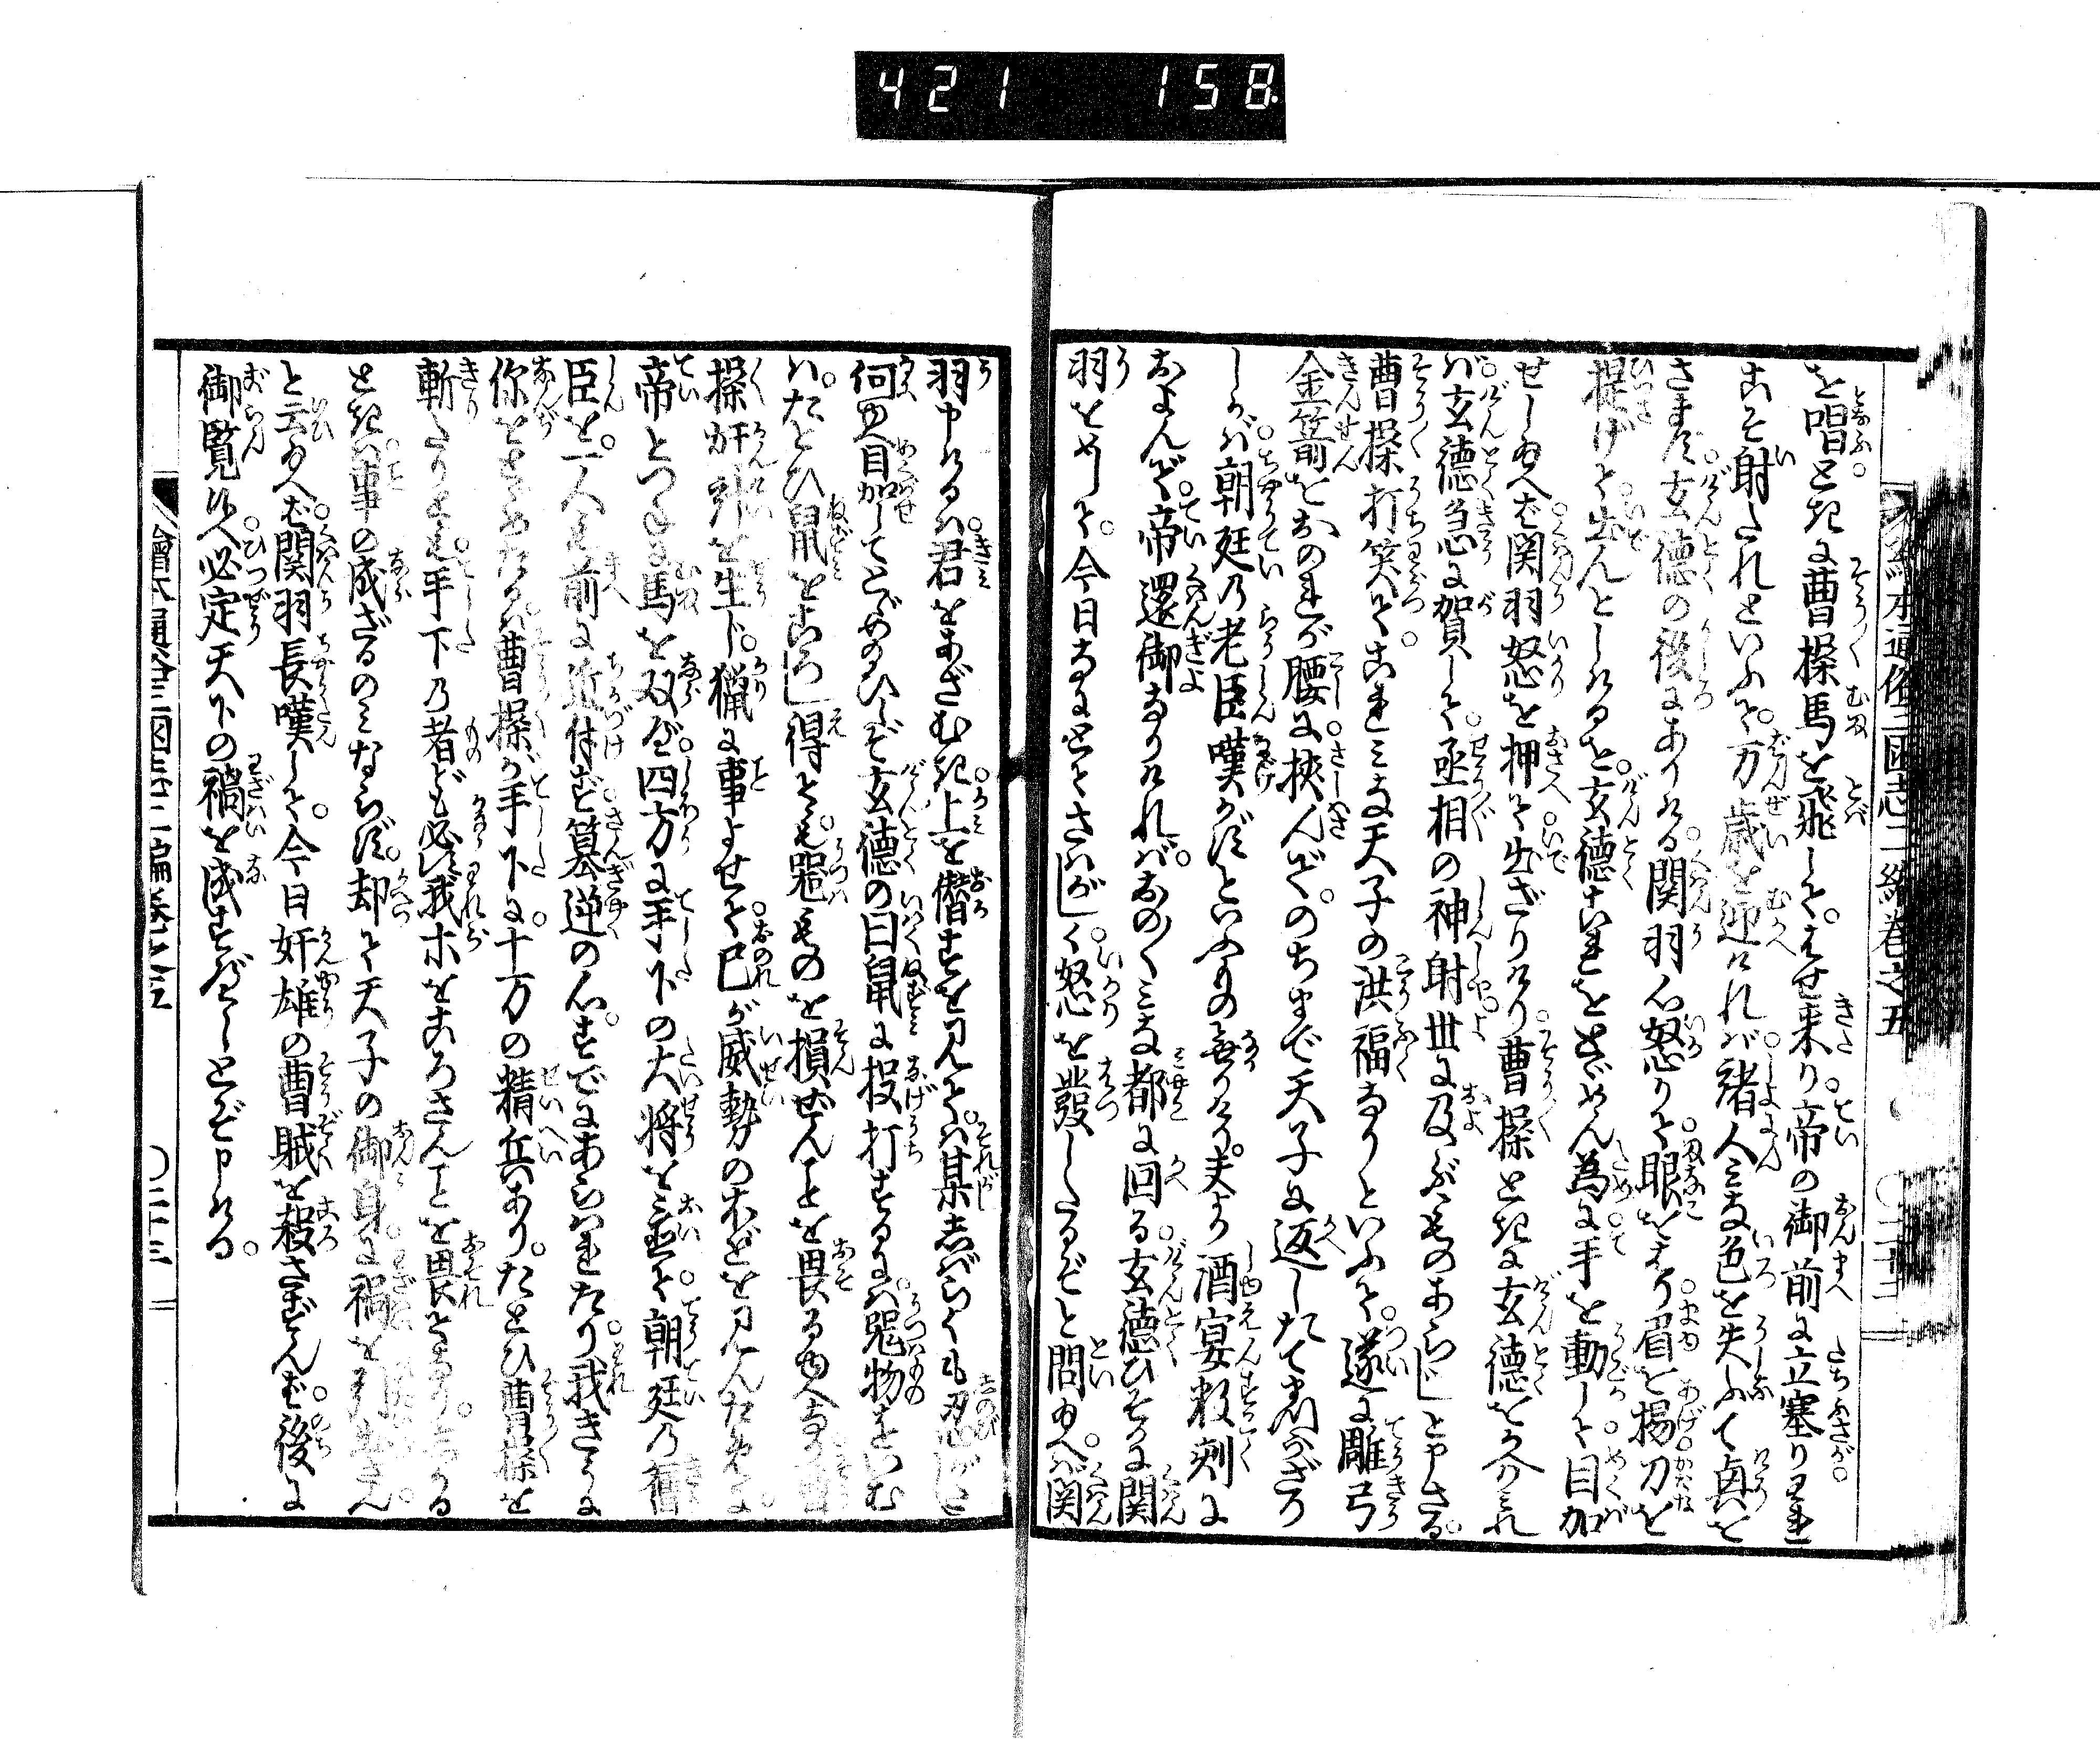 421 158
繪本通俗三國志二編巻之五
を唱ときに曹操馬を飛して。はせ来り。帝の御前に立塞りわれ
こそ射たれといふて。万歳を迎けれバ。諸人みな色を失ふて興を
さます。玄徳の後にありける。関羽心怒りて。眼をはり。眉を揚。刀を
提げて。出んとしけるを。玄徳これをとゞめん為に。手を動して目加
せしかバ。関羽怒を押へて出ざりけり。曹操ときに玄徳をかへりミれ
バ。玄徳急に賀して。丞相の神射世に及ぶものあらじと申さる。
曹操打笑て。これミな天子の洪福なりといふて。遂に雕弓
金箭をおのれが腰に挟んで。のちまで天子に返したてまつらざり
しかバ。朝廷の老臣嘆かずといふもの無りけり。夫より酒宴数刻に
およんで。帝還御なりけれバ。おの〳〵ミな都に回る。玄徳ひそかに関
羽をめして。今日なにとてさハがしく怒を發したるぞと問給へバ。関
羽申けるハ。君をあざむき。上を僣すを見て。某しバらくも忍びがたし
何ゆへ目加してとゞめ給ひしぞ。玄徳の曰鼠に投打するにハ。器物をいむ
ハ。たとひ鼠をころし得ても。器ものを損ぜんことを畏るゆへなり曹
操奸計を生じ。猟に事よせて。己が威勢のほどを見んために
帝とつねに馬を双べ。四方に手下の大将をミて。朝廷の舊
臣を。一人も前に近付ず。簒逆の心。すでにあらハれたり。我きうに
你をとゞめたるハ曹操が手下に。十万の精兵あり。たとひ曹操を
斬たりとも。手下の者ども必ず我ホをころさんことを畏るゝなり。
とき。事の成ざるのミならず。却て天子の御身に禍を引出さん
と云給へバ。関羽長嘆して。今日奸雄の曹賊を殺さずんバ。後に
御覧候へ。必定天下の禍を成すべしとぞ申ける。
繪本通俗三国志二編巻之五
〇二十三